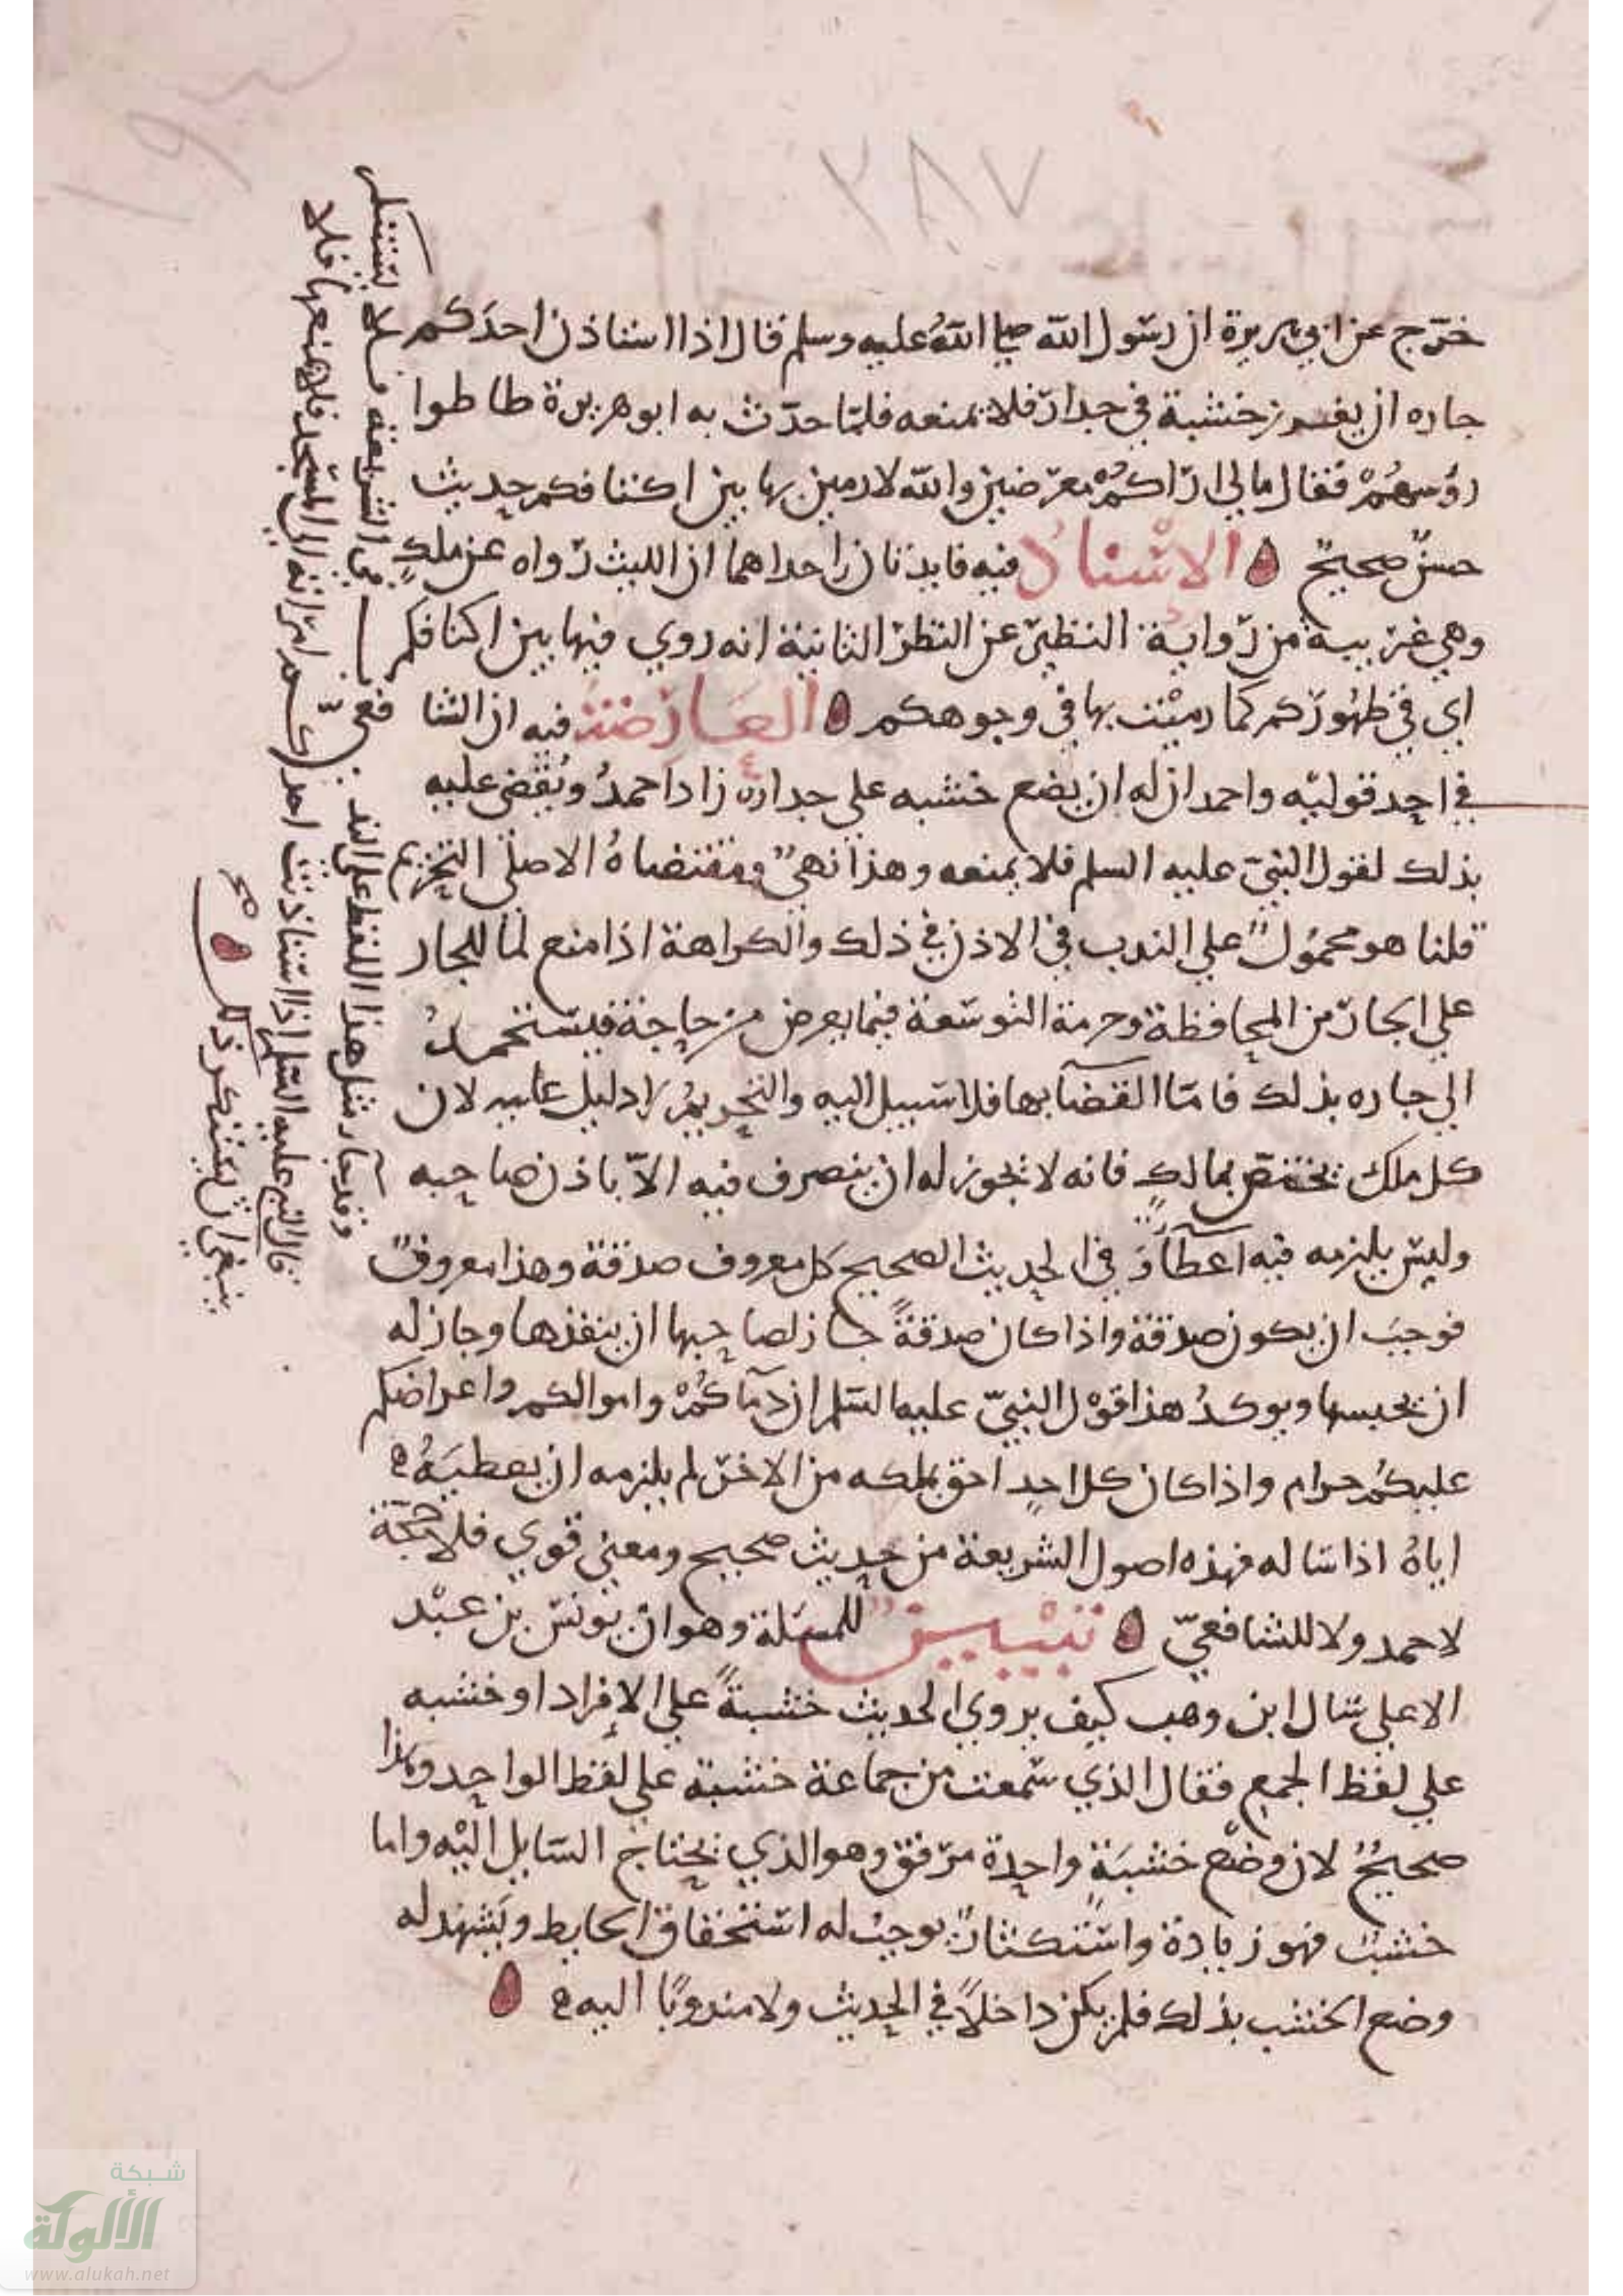 ٢٨٧
خرّج عن ابي هريرة ان رسول الله صلى الله عليه وسلم قال اذا استاذن احدكم
جاره ان يغرز خشبة في جداره فلا يمنعه فلمّا حدّث به ابو هريرة طاطوا
رؤسهم فقال مالي اراكم معرضين والله لارمين بها بين اكتافكم حديث
حسن صحيح الاسناد فيه فايدتان احداهما ان الليث رواه عن ملك
وهي غريبة من رواية النظير عن النظر الثانية انه روي فيها بين اكنافكم
اي في ظهوركم كما رميت بها في وجوهكم العارضة فيه ان الشافعي
في احد قوليه واحمد ان له ان يضع خشبه على جداره زاد احمد ويقضى عليه
بذلك لقول النبي عليه السلم فلا يمنعه وهذا نهي ومقتضاه الاصلي التحريم
قلنا هو محمول على الندب في الاذن في ذلك والكراهة اذا منع لما للجار
على الجار من المحافظة وحرمة التوسعة فيما يعرض من حاجة فيستحمد
الى جاره بذلك فاما القضا بها فلا سبيل اليه والتحريم لا دليل عليه لان
كل ملك يختص بمالك فانه لا يجوز له ان يتصرف فيه الا باذن صاحبه
وليس يلزمه فيه اعطاؤ في الحديث الصحيح كل معروف صدقة وهذا معروف
فوجب ان يكون صدقة واذا كان صدقة جاز لصاحبها ان ينفذها وجاز له
ان يحبسها ويوكد هذا قول النبيّ عليه السلم ان دمآكم واموالكم واعراضكم
عليكم حرام واذا كان كل احد احق بملكه من الاخر لم يلزمه ان يعطيه
اياه اذا ساله فهذه اصول الشريعة من حديث صحيح ومعنى قوي فلا حجة
لاحمد ولا للشافعيّ تبيين للمسلة وهو ان يونس بن عبد
الاعلى سال ابن وهب كيف يروي الحديث خشبة على الإفراد او خشبه
على لفظ الجمع فقال الذي سمعت من جماعة خشبة على لفظ الواحد وهذا
صحيح لان وضع خشبة واحدة مرفق وهو الذي يحتاج السايل اليه واما
خشب فهو زيادة واستكثار يوجب له استحقاق الحايط ويشهد له
وضع الخشب بذلك فلم يكن داخلا في الحديث ولا مندوبا اليه
وقد جآ مثل هذا اللفظ على الندب في الشريعة
قال النبي عليه السلم اذا استاذنت احدكم امراته الى المسجد فلا يمنعها فلا
ينبغي ان يستنكر ذلك
صح
شبكة
الألوكة
www.alukah.net